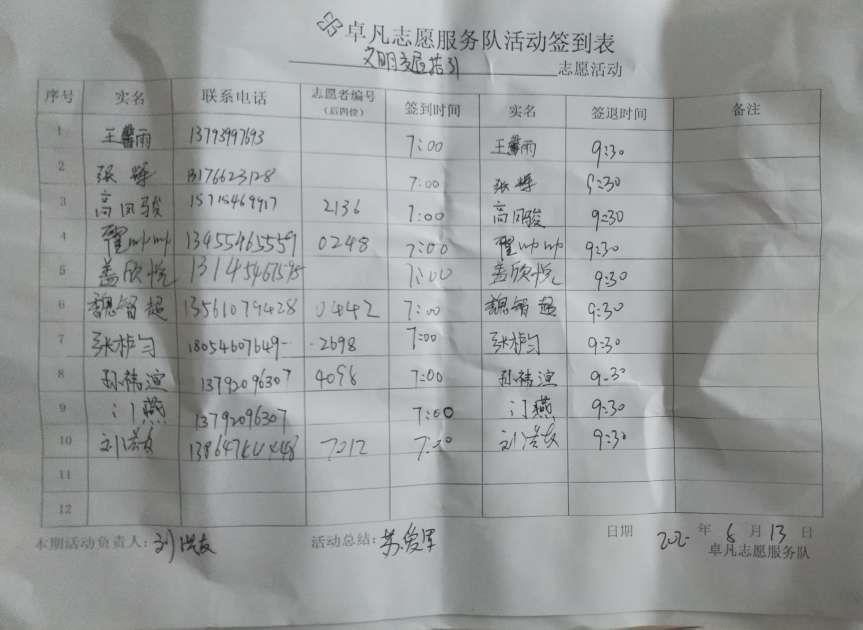 卓凡志愿服务队活动签到表
文明交通指引 志愿活动
序号 实名 联系电话 志愿者编号（后四位） 签到时间 实名 签退时间 备注
1 王馨雨 13793997693 7:00 王馨雨 9:30
2 张辉 13176623128 7:00 张辉 9:30
3 高凤骏 15715469917 2136 7:00 高凤骏 9:30
4 翟帅帅 13455465559 0248 7:00 翟帅帅 9:30
5 盖欣悦 7:00 盖欣悦 9:30
6 魏智超 13561079428 0442 7:00 魏智超 9:30
7 18054607649 2698 7:00 9:30
8 13792096307 4098 7:00 9:30
9 门燕 13792096307 7:00 门燕 9:30
10 7:00 9:30
11
12
本期活动负责人: 活动总结:苏爱军 日期 年 月 13 日
卓凡志愿服务队